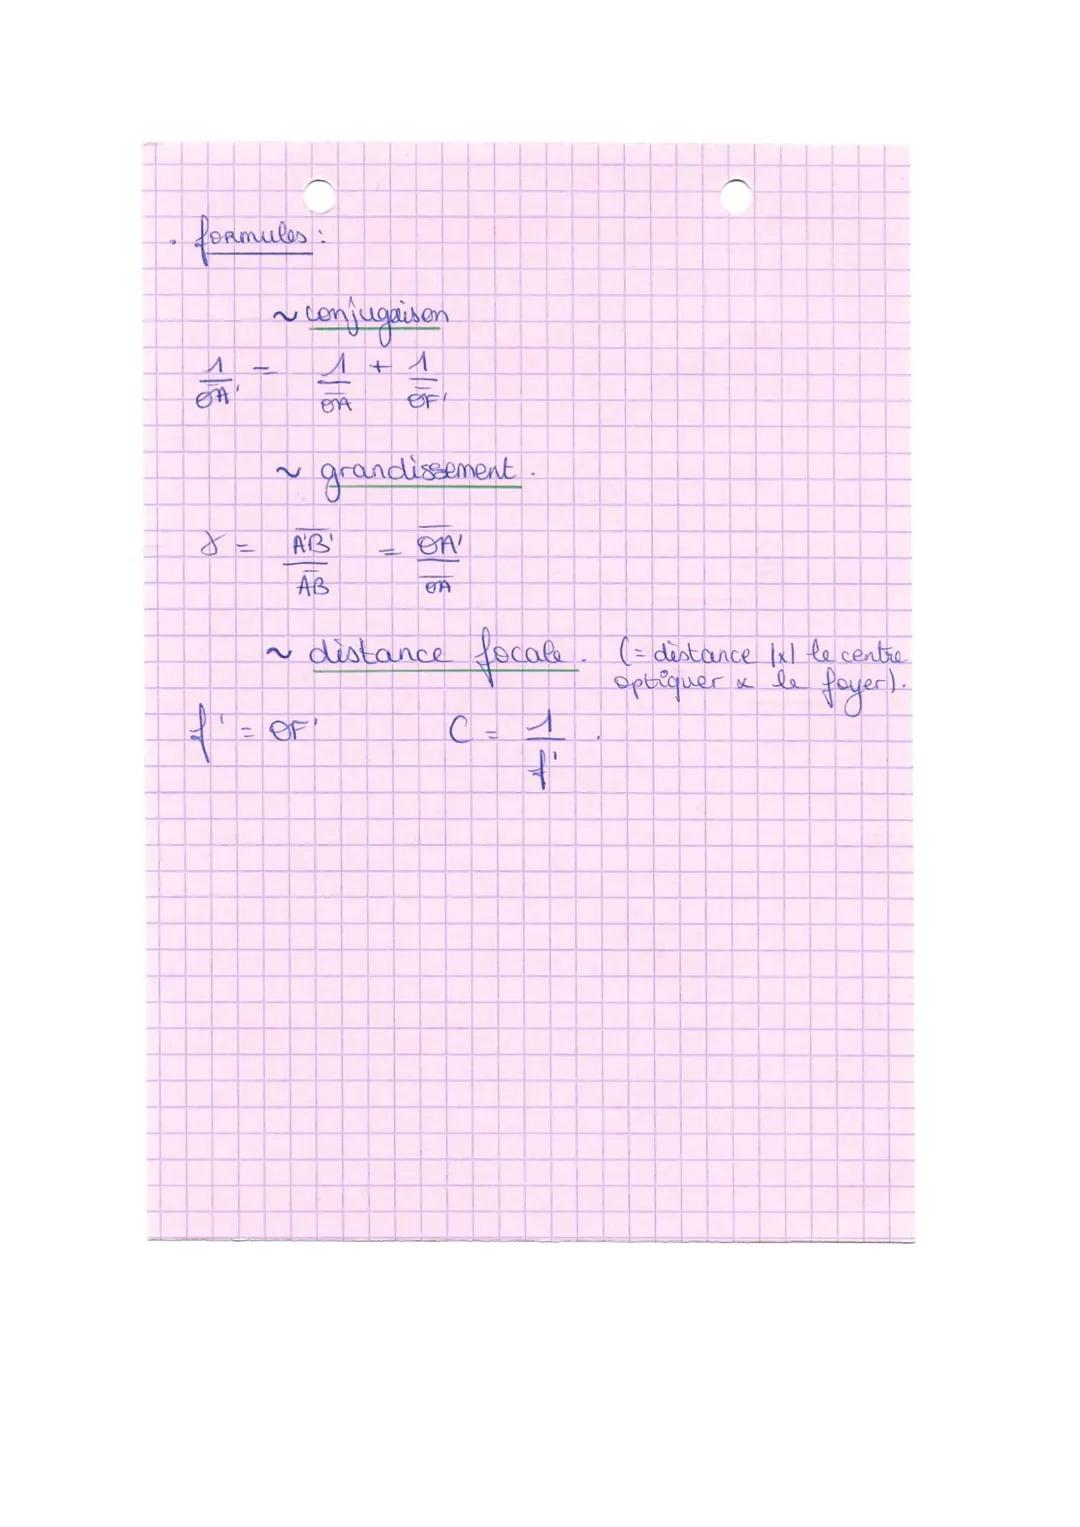 . formules :
~ conjugaison
1/O̅A̅' = 1/O̅A̅ + 1/O̅F̅'
~ grandissement.
γ = A̅'B̅'/A̅B̅ = O̅A̅'/O̅A̅
~ distance focale. (= distance |x| le centre
optiquer & le foyer).
f' = OF' C = 1/f' .